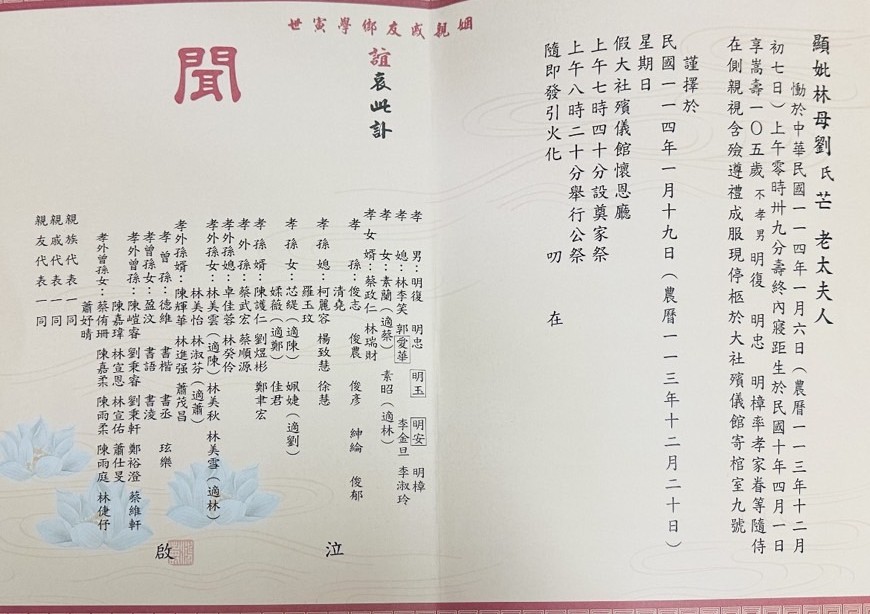 顯妣林母劉氏芒 老太夫人
慟於中華民國一一四年一月六日（農曆一一三年十二月
初七日）上午零時卅九分壽終內寢距生於民國十年四月一日
享嵩壽一〇五歲 不孝男 明復 明忠 明樟率孝家眷等隨侍
在側親視含殮遵禮成服現停柩於大社殯儀館寄棺室九號
謹擇於
民國一一四年一月十九日（農曆一一三年十二月二十日）
星期日
假大社殯儀館懷恩廳
上午七時四十分設奠家祭
上午八時二十分舉行公祭
隨即發引火化 叨 在
姻親戚友鄉學寅世
誼哀此訃
聞
孝 男：明復 明忠 明玉 明安 明樟
孝 媳：林李笑 郭愛華 李金旦 李淑玲
孝 女：素蘭（適蔡） 素昭（適林）
孝 女 婿：蔡政仁 林瑞財
孝 孫：俊志 俊農 俊彥 紳綸 俊郁
清堯
孝 孫 媳：柯麗容 楊致慧 徐慧
羅玉玟
孝 孫 女：芯緹（適陳） 姵婕（適劉）
媃薇（適鄭） 佳君
孝 孫 婿：陳護仁 劉煜彬 鄭聿宏
孝 外 孫：蔡武宏 蔡順源
孝外孫媳：卓佳蓉 林癸伶
孝外孫女：林美雲（適陳） 林美秋 林美雪（適林）
林美怡 林淑芬（適蕭）
孝外孫婿：陳輝華 林進强 蕭茂昌
孝 曾 孫：德維 書楷 書丞 玹樂
孝曾孫女：盈汶 書語 書淩
孝外曾孫：陳嵦睿 劉秉睿 劉秉軒 鄭裕澄 蔡維軒
陳嘉瑋 林宣恩 林宣佑 蕭仕旻
孝外曾孫女：蔡侑珊 陳嘉柔 陳雨柔 陳雨庭 林倢伃
蕭妤晴
親族代表一同
親戚代表一同
親友代表一同
泣
啟